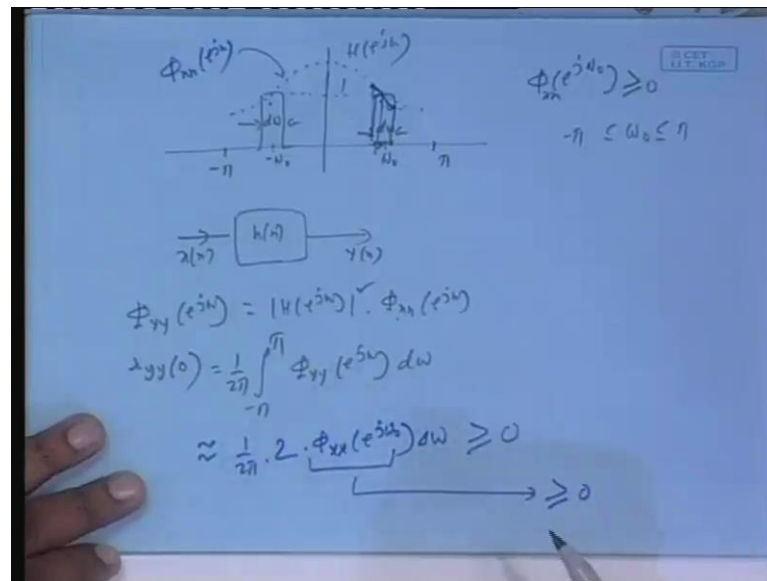 Φxx(e^jω)
H(e^jω)
1
dω
dω
-π
-ω₀
ω₀
π
© CET
I.I.T. KGP
Φxx(e^jω₀) ≥ 0
-π ≤ ω₀ ≤ π
x(n) h(n) y(n)
Φyy(e^jω) = |H(e^jω)|². Φxx(e^jω)
ryy(0) = 1/2π ∫_-π^π Φyy(e^jω) dω
≈ 1/2π . 2 . Φxx(e^jω₀) Δω ≥ 0
≥ 0